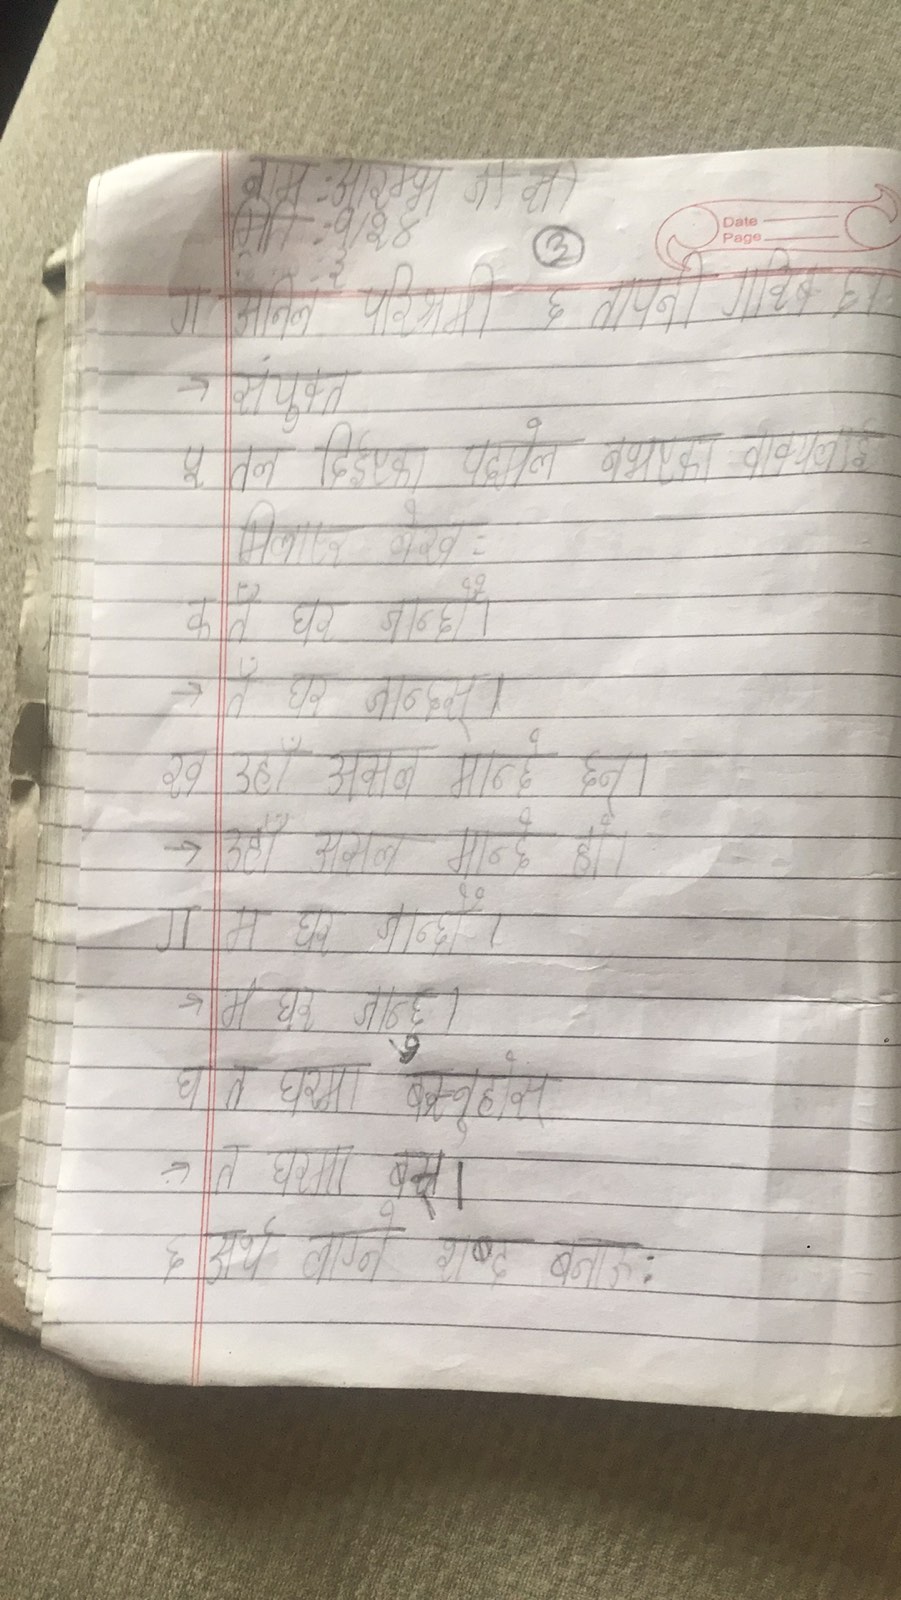 नाम : आरम्भ
मिति : १/२४
३
Date
Page
ग अनिल परिश्रमी छ तापनी गरिब छ।
→ संयुक्त
५ तल दिइएका पदमेल बभएका वाक्यलाई
मिलाएर लेख :
क तँ घर जान्छौँ।
→ तँ घर जान्छस्।
ख उहाँ असल मान्छे छन्।
→ उहाँ असल मान्छे हो।
ग म घर जान्छौँ।
→ म घर जान्छु।
घ त घरमा बस्नुहोस्
→ त घरमा बस्।
६ अर्थ लाग्ने शब्द बनाऊ :